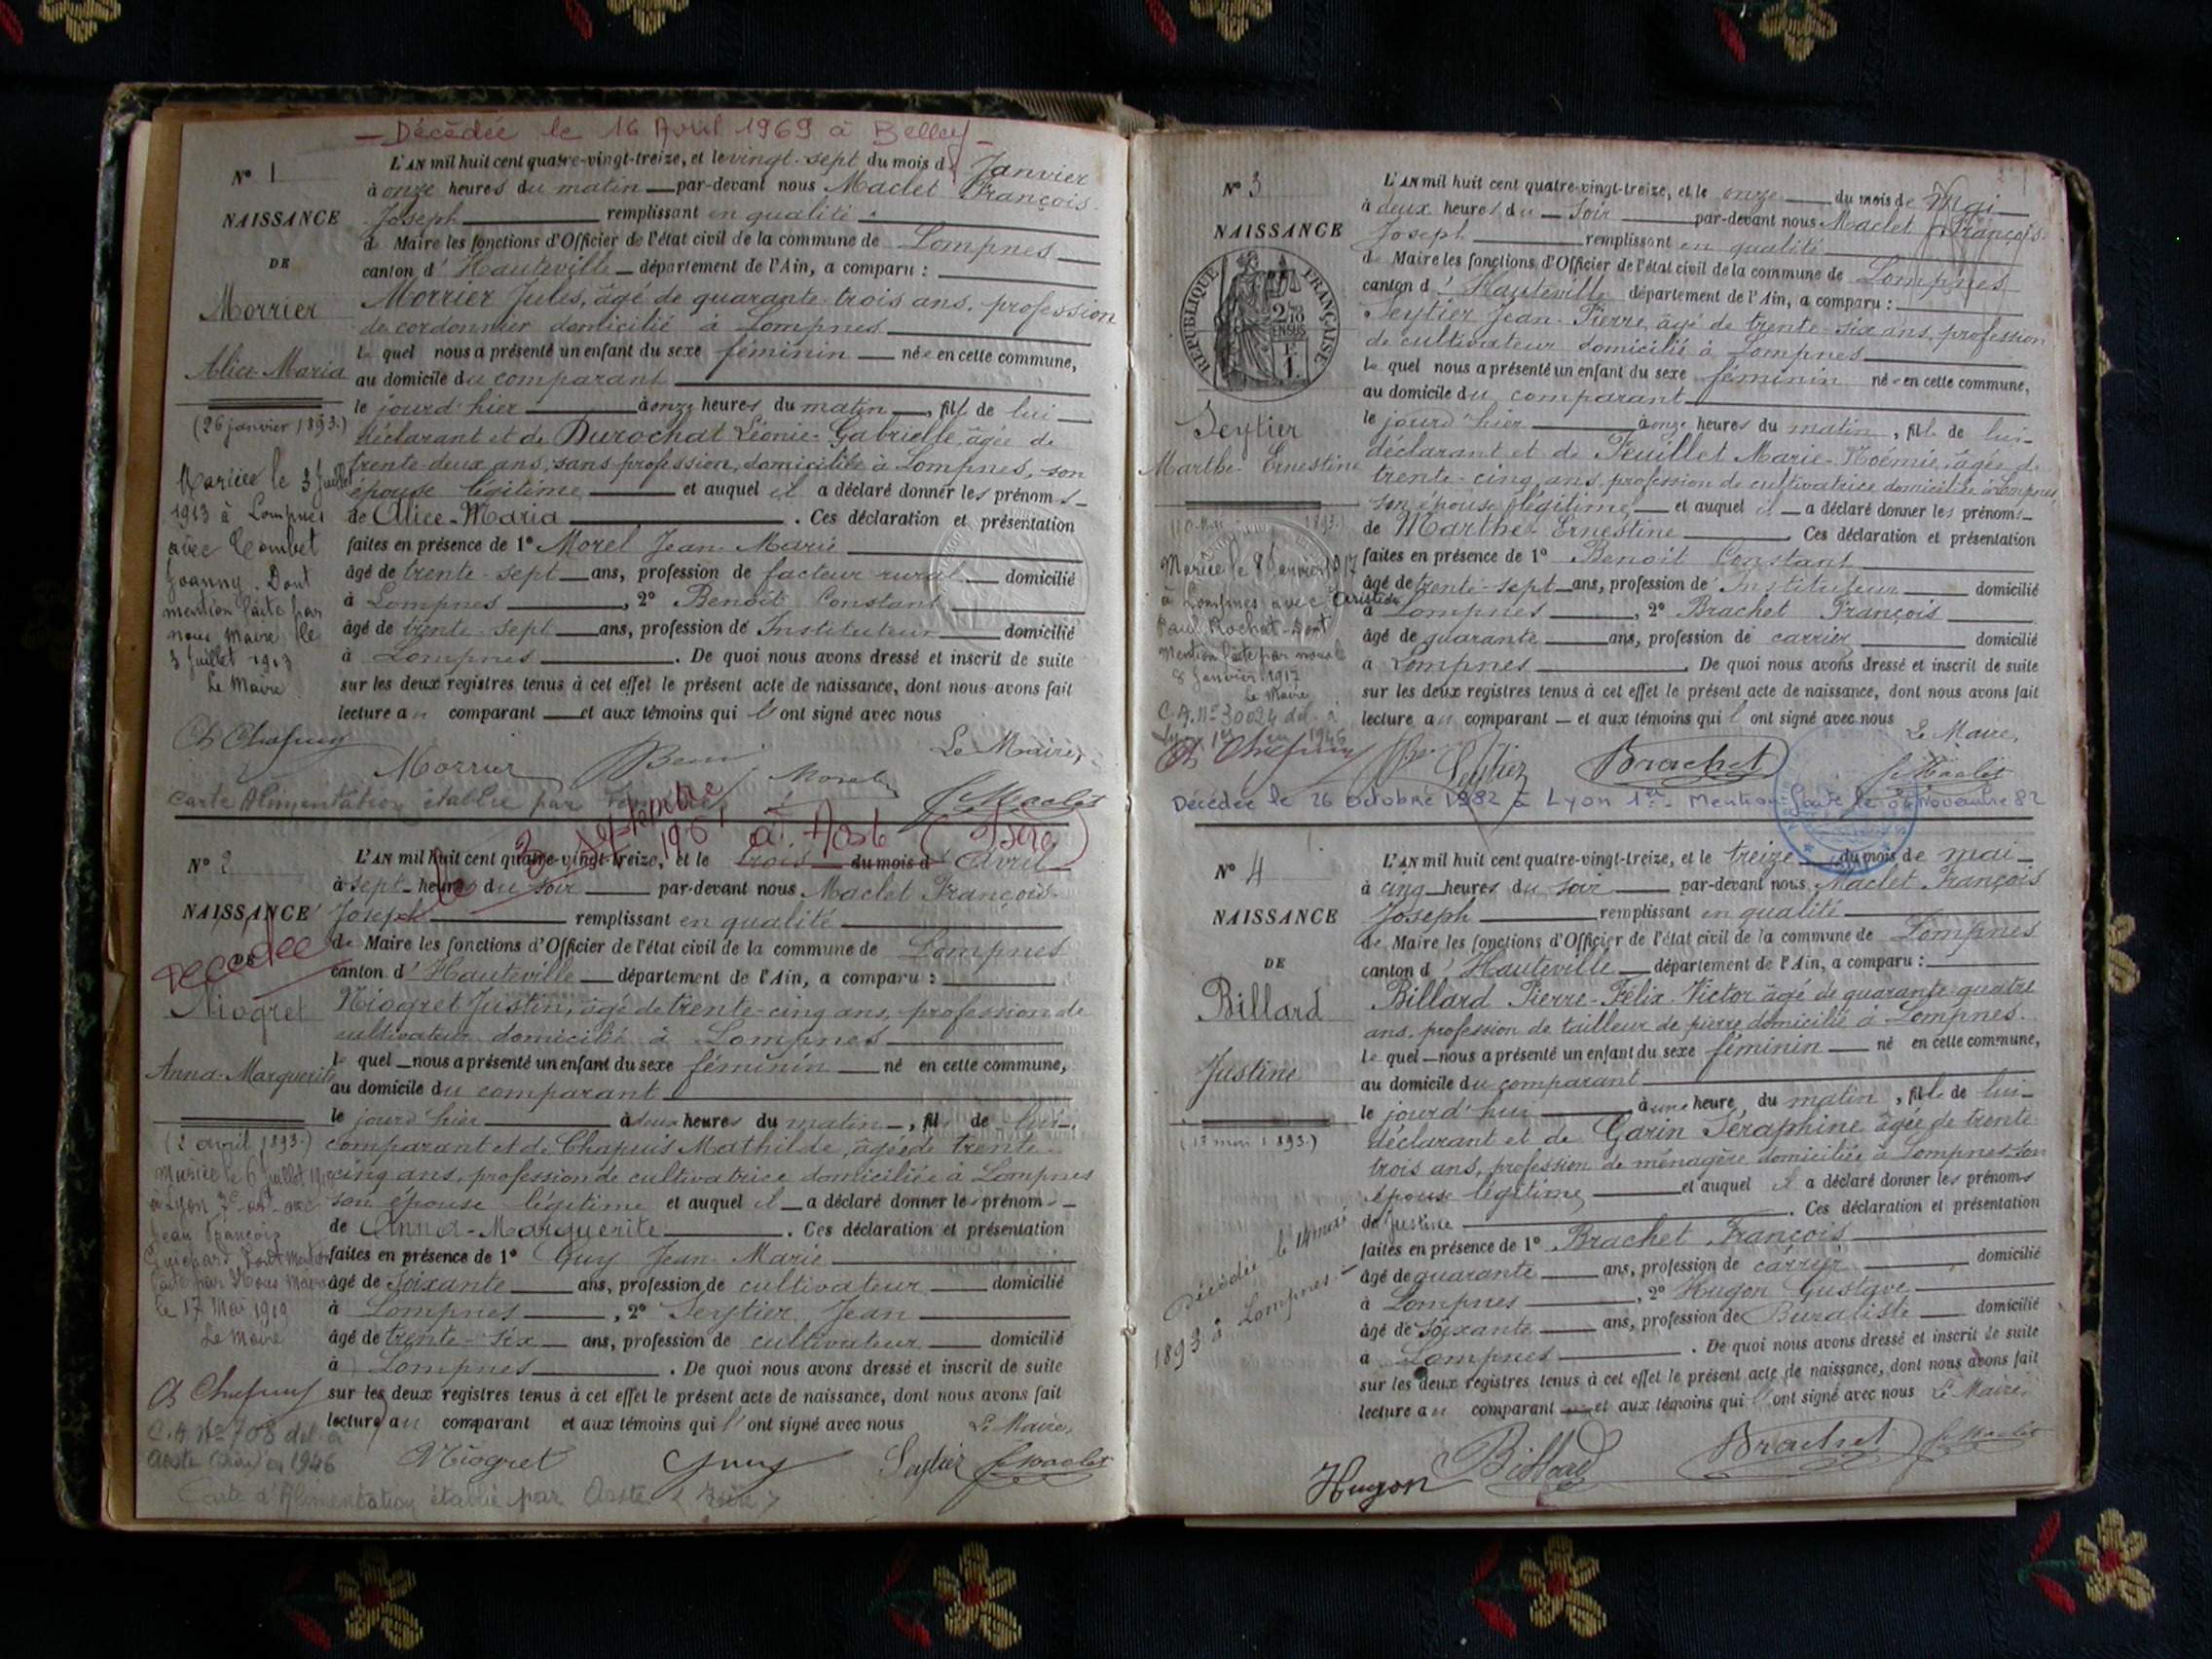 — Décédée le 16 Avril 1969 à Belley —
N° 1
NAISSANCE
DE
Morrier
Alice-Maria
(26 janvier 1893.)
Mariée le 3 Juillet
1913 à Lompnes
avec Combet
Joanny. Dont
mention faite par
nous Maire le
3 Juillet 1913
Le Maire
L'AN mil huit cent quatre-vingt-treize, et le vingt-sept du mois de Janvier
à onze heures du matin par-devant nous Maclet François
Joseph remplissant en qualité
de Maire les fonctions d'Officier de l'état civil de la commune de Lompnes
canton d'Hauteville département de l'Ain, a comparu :
Morrier Jules, âgé de quarante-trois ans, profession
de cordonnier domicilié à Lompnes
le quel nous a présenté un enfant du sexe féminin née en cette commune,
au domicile du comparant
le jourd'hier à onze heures du matin, fille de lui
déclarant et de Durochat Léonie-Gabrielle, âgée de
trente-deux ans, sans profession, domiciliée à Lompnes, son
épouse légitime et auquel il a déclaré donner les prénoms
de Alice-Maria. Ces déclaration et présentation
faites en présence de 1° Morel Jean-Marie
âgé de trente-sept ans, profession de facteur rural domicilié
à Lompnes, 2° Benoit Constant
âgé de trente-sept ans, profession de Instituteur domicilié
à Lompnes. De quoi nous avons dressé et inscrit de suite
sur les deux registres tenus à cet effet le présent acte de naissance, dont nous avons fait
lecture au comparant et aux témoins qui l'ont signé avec nous
Le Maire,
Morrier Morel J. Maclet
Carte Alimentation établie par
N° 2
NAISSANCE
DE
décédée le 30 septembre 1961 à Aoste (Isère)
Niogret
Anna-Marguerite
(2 avril 1893.)
Mariée le 6 Juillet
à Lyon 3e arrt avec
Jean François
par Nous Maire
le 17 Mai 1919
Le Maire
C.A. N° 708 dél. à
Aoste (Isère) en 1946
L'AN mil huit cent quatre-vingt-treize, et le trois du mois d'Avril
à sept heures du soir par-devant nous Maclet François
Joseph remplissant en qualité
de Maire les fonctions d'Officier de l'état civil de la commune de Lompnes
canton d'Hauteville département de l'Ain, a comparu :
Niogret Justin, âgé de trente-cinq ans, profession de
cultivateur domicilié à Lompnes
le quel nous a présenté un enfant du sexe féminin né en cette commune,
au domicile du comparant
le jourd'hier à deux heures du matin, fille de lui
comparant et de Chapuis Mathilde, âgée de trente-
cinq ans, profession de cultivatrice domiciliée à Lompnes
son épouse légitime et auquel il a déclaré donner les prénoms
de Anna-Marguerite. Ces déclaration et présentation
faites en présence de 1° Guy Jean-Marie
âgé de soixante ans, profession de cultivateur domicilié
à Lompnes, 2° Seytier Jean
âgé de trente-six ans, profession de cultivateur domicilié
à Lompnes. De quoi nous avons dressé et inscrit de suite
sur les deux registres tenus à cet effet le présent acte de naissance, dont nous avons fait
lecture au comparant et aux témoins qui l'ont signé avec nous
Le Maire,
Niogret Guy Seytier J. Maclet
Carte d'Alimentation établie par Aoste (Isère)
N° 3
NAISSANCE
RÉPUBLIQUE FRANÇAISE
Seytier
Marthe-Ernestine
(10 Mai 1893.)
Mariée le 8 Janvier 1917
à Lompnes avec Aristide
Paul Rochat. Dont
Mention faite par nous le
8 Janvier 1917
Le Maire
C.A. N° 30024 dél. à
L'AN mil huit cent quatre-vingt-treize, et le onze du mois de Mai
à deux heures du soir par-devant nous Maclet François
Joseph remplissant en qualité
de Maire les fonctions d'Officier de l'état civil de la commune de Lompnes
canton d'Hauteville département de l'Ain, a comparu :
Seytier Jean-Pierre, âgé de trente-six ans, profession
de cultivateur domicilié à Lompnes
le quel nous a présenté un enfant du sexe féminin née en cette commune,
au domicile du comparant
le jourd'hier à onze heures du matin, fille de lui
déclarant et de Feuillet Marie-Noémie, âgée de
trente-cinq ans, profession de cultivatrice domiciliée à Lompnes,
son épouse légitime et auquel il a déclaré donner les prénoms
de Marthe-Ernestine. Ces déclaration et présentation
faites en présence de 1° Benoit Constant
âgé de trente-sept ans, profession de Instituteur domicilié
à Lompnes, 2° Brachet François
âgé de quarante ans, profession de carrier domicilié
à Lompnes. De quoi nous avons dressé et inscrit de suite
sur les deux registres tenus à cet effet le présent acte de naissance, dont nous avons fait
lecture au comparant et aux témoins qui l'ont signé avec nous
Le Maire,
Seytier Brachet J. Maclet
Décédée le 26 octobre 1982 à Lyon 1er. Mention faite le 04 Novembre 82
N° 4
NAISSANCE
DE
Billard
Justine
(13 mai 1893.)
Décédée le 14 mai
1893 à Lompnes.
L'AN mil huit cent quatre-vingt-treize, et le treize du mois de mai
à cinq heures du soir par-devant nous Maclet François
Joseph remplissant en qualité
de Maire les fonctions d'Officier de l'état civil de la commune de Lompnes
canton d'Hauteville département de l'Ain, a comparu :
Billard Pierre-Félix-Victor âgé de quarante-quatre
ans, profession de tailleur de pierre domicilié à Lompnes.
le quel nous a présenté un enfant du sexe féminin né en cette commune,
au domicile du comparant
le jourd'hui à une heure du matin, fille de lui
déclarant et de Garin Séraphine âgée de trente-
trois ans, profession de ménagère domiciliée à Lompnes son
épouse légitime et auquel il a déclaré donner les prénoms
de Justine. Ces déclaration et présentation
faites en présence de 1° Brachet François
âgé de quarante ans, profession de carrier domicilié
à Lompnes, 2° Hugon Gustave
âgé de soixante ans, profession de Buraliste domicilié
à Lompnes. De quoi nous avons dressé et inscrit de suite
sur les deux registres tenus à cet effet le présent acte de naissance, dont nous avons fait
lecture au comparant et aux témoins qui l'ont signé avec nous Le Maire,
Hugon Billard Brachet J. Maclet